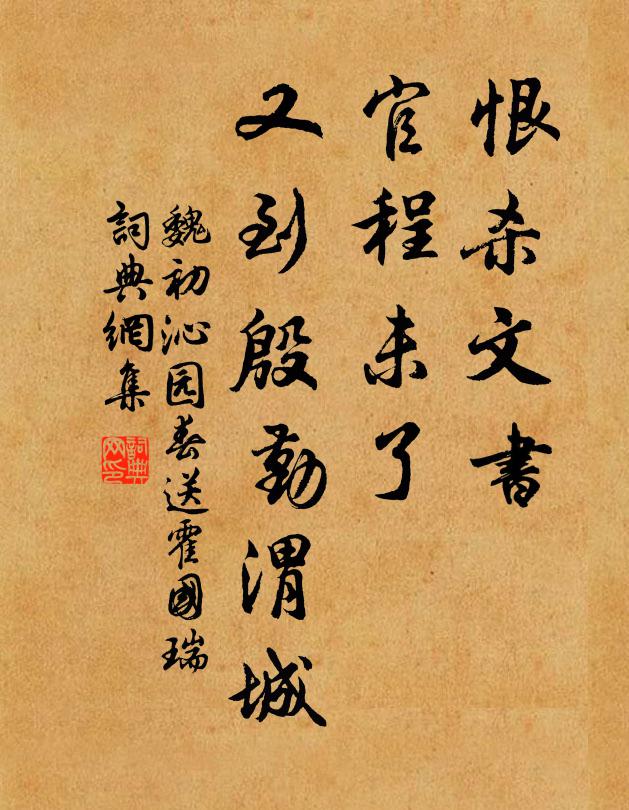 恨杀文書
官程未了
又到殷勤渭城
魏初沁园春送霍國瑞
詞典網集
詞典網印